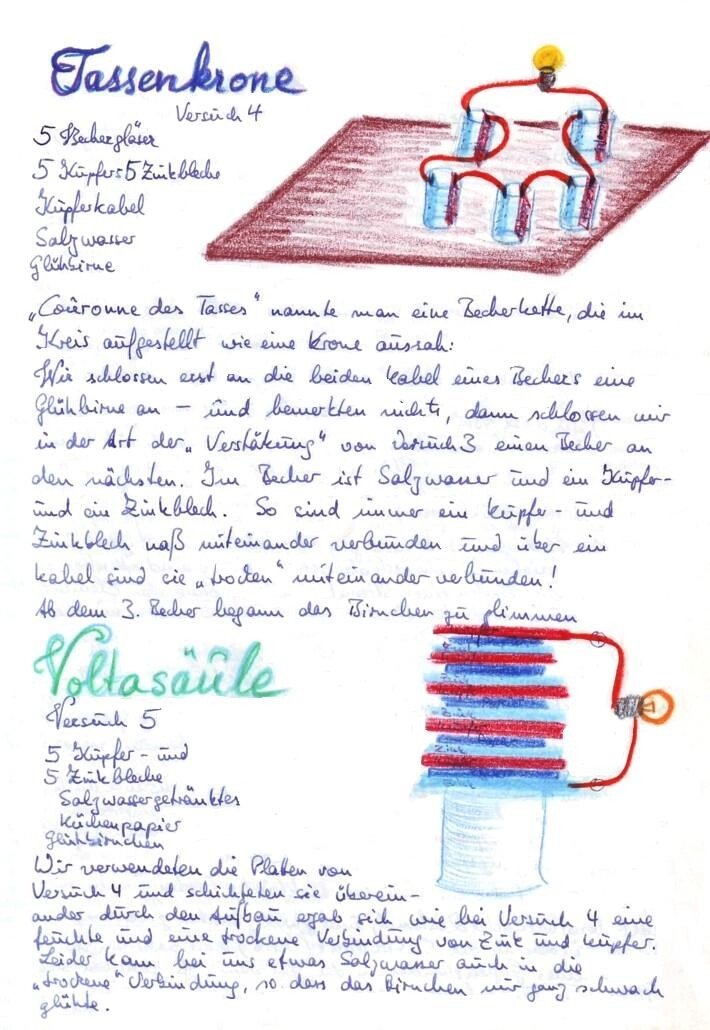 Tassenkrone
Versuch 4
5 Bechergläser
5 Kupfer & 5 Zinkbleche
Kupferkabel
Salzwasser
Glühbirne
„Couronne des Tasses" nannte man eine Becherkette, die im
Kreis aufgestellt wie eine Krone aussah:
Wir schlossen erst an die beiden Kabel eines Bechers eine
Glühbirne an – und bemerkten nichts, dann schlossen wir
in der Art der „Verstäkung" von Versuch 3 einen Becher an
den nächsten. Im Becher ist Salzwasser und ein Kupfer-
und ein Zinkblech. So sind immer ein Kupfer- und
Zinkblech naß miteinander verbunden und über ein
Kabel sind sie „trocken" miteinander verbunden!
Ab dem 3. Becher begann das Birnchen zu glimmen
Voltasäule
Versuch 5
5 Kupfer- und
5 Zinkbleche
Salzwassergetränktes
Küchenpapier
Glühbirnchen
Wir verwendeten die Platen von
Versuch 4 und schichteten sie überein-
ander durch den Aufbau ergab sich wie bei Versuch 4 eine
feuchte und eine trockene Verbindung von Zink und Kupfer.
Leider kam bei uns etwas Salzwasser auch in die
„trockene" Verbindung, so dass das Birnchen nur ganz schwach
glühte.